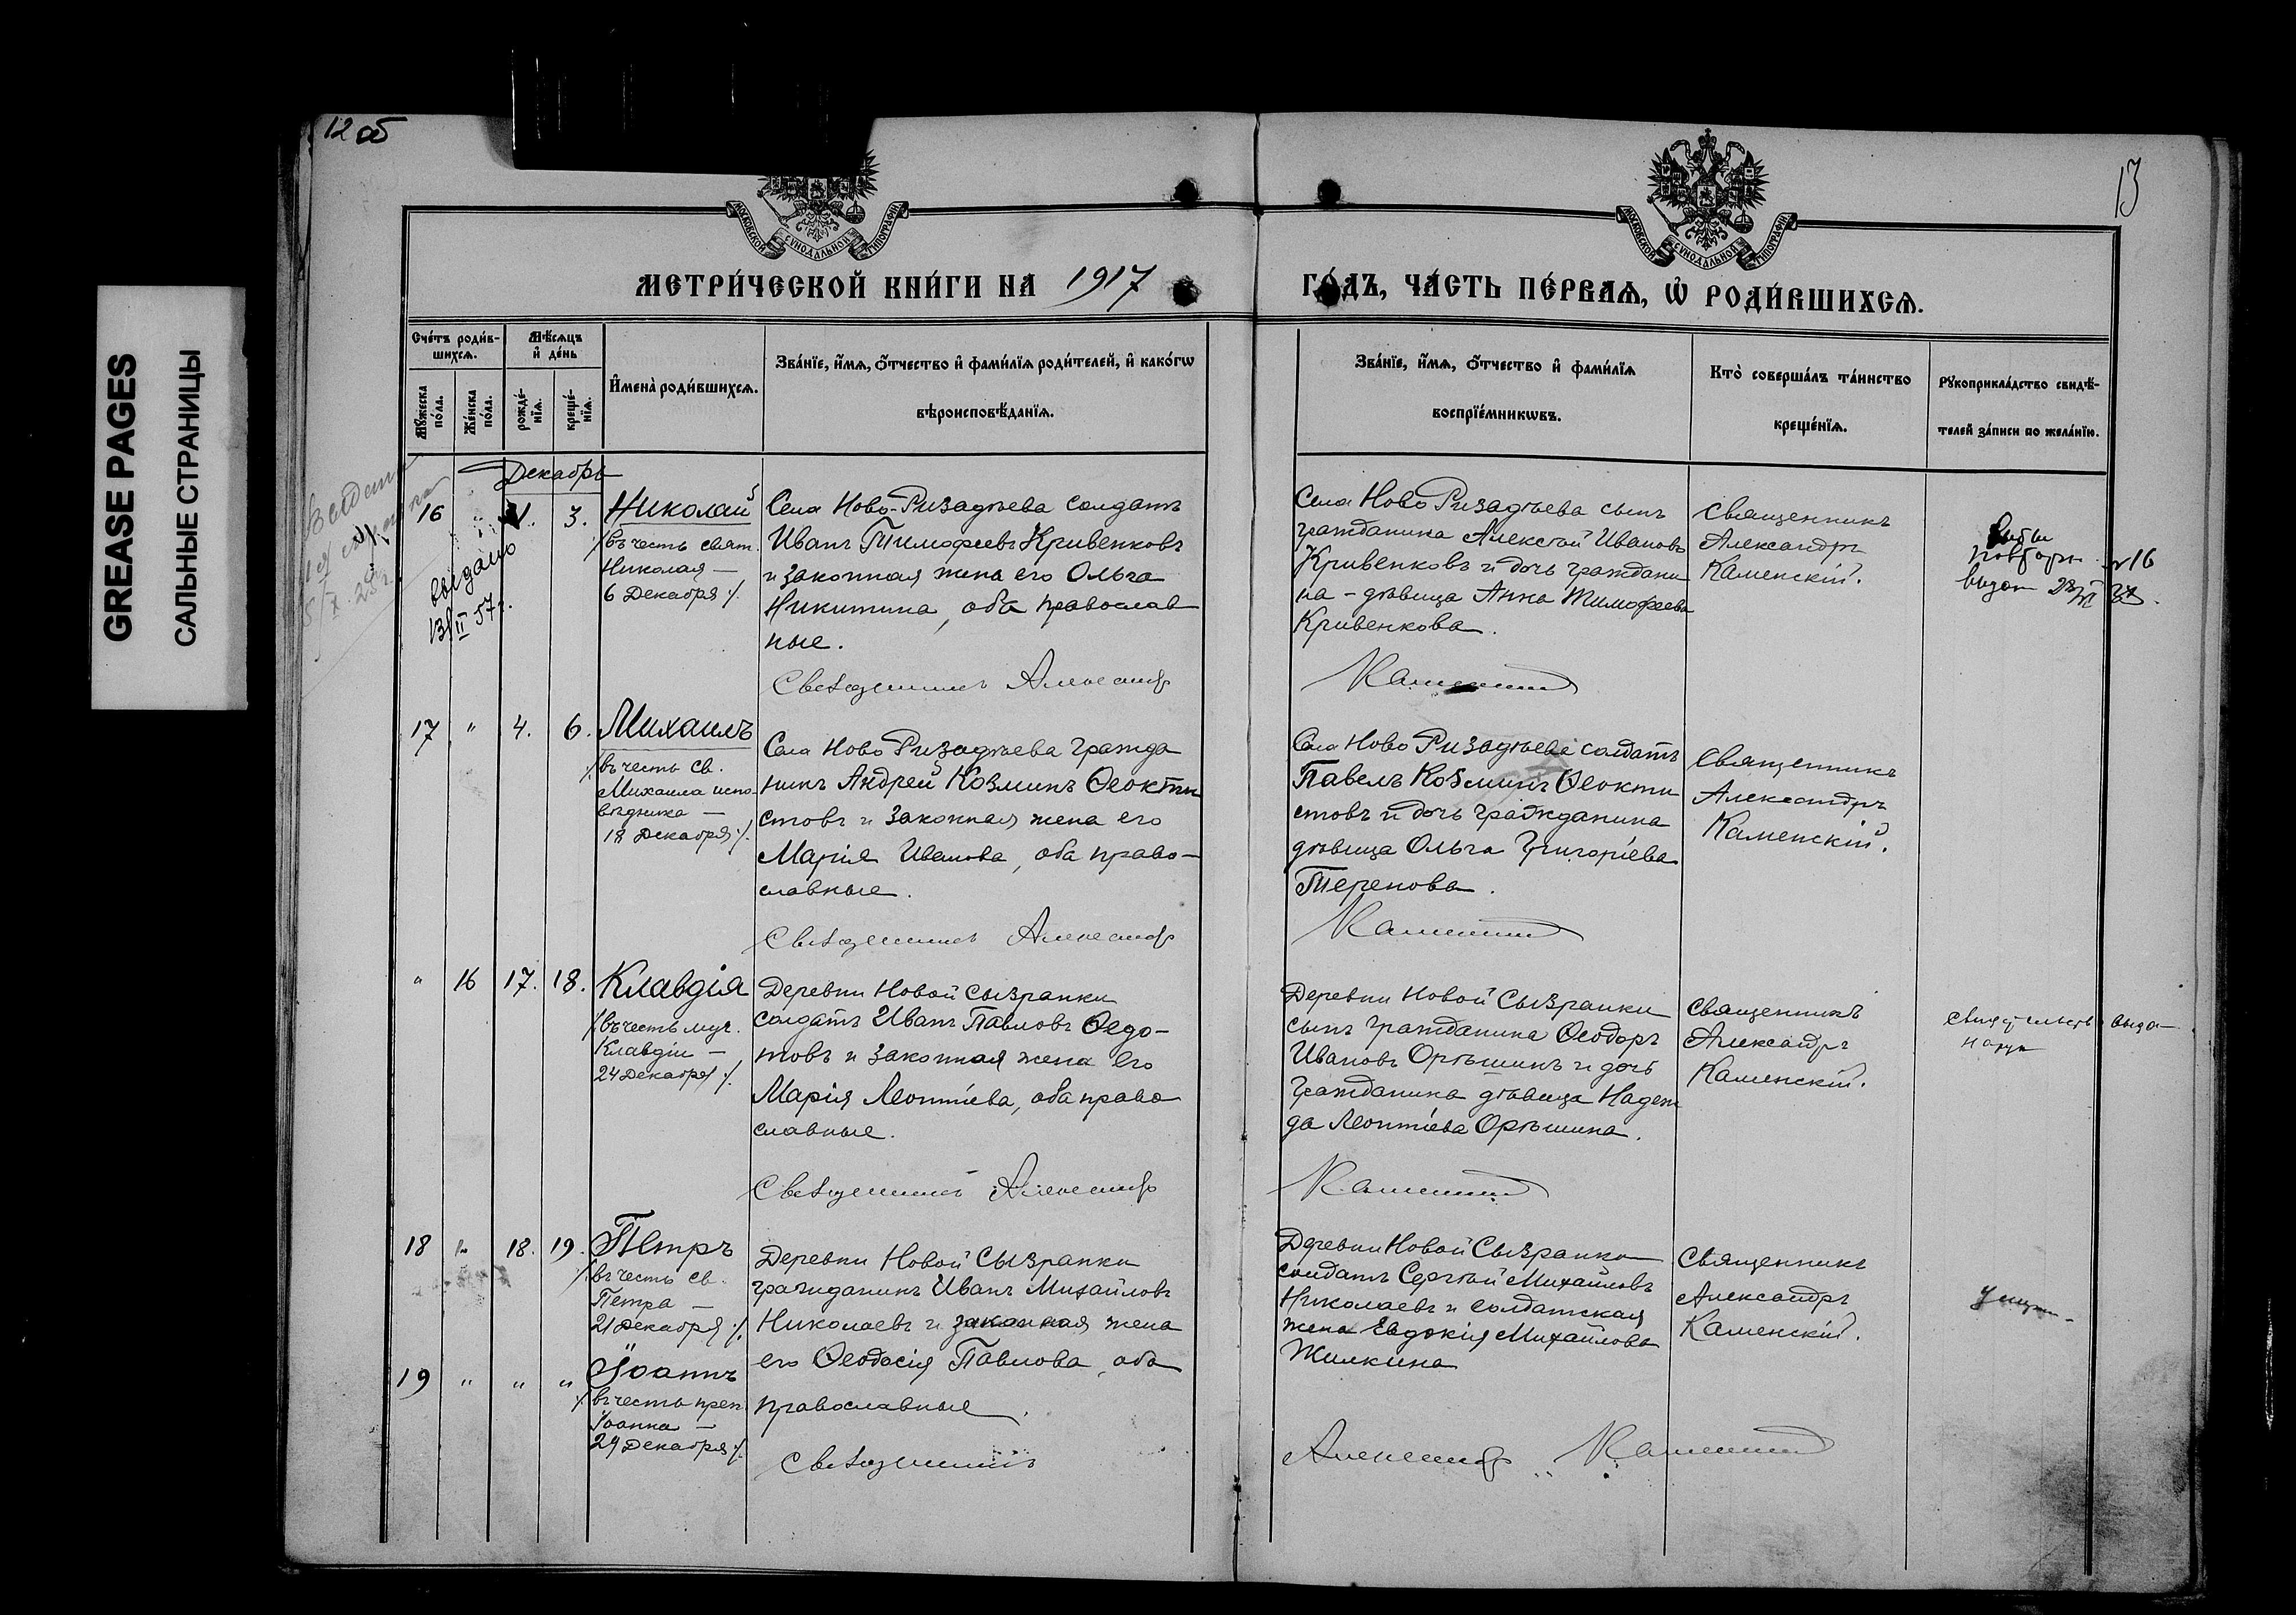 GREASE PAGES
САЛЬНЫЕ СТРАНИЦЫ
12 об
13
МОСКОВСКОЙ СѴНОДАЛЬНОЙ ТИПОГРАФІИ
МОСКОВСКОЙ СѴНОДАЛЬНОЙ ТИПОГРАФІИ
МЕТРИ́ЧЕСКОЙ КНИ́ГИ НА 1917
ГО́ДЪ, ЧА́СТЬ ПЕ́РВАѦ, Ѽ РОДИ́ВШИХСѦ.
Сче́тъ роди́в-
шихсѧ.
Мѣ́сѧцъ
и҆ де́нь
Мꙋ́жеска
по́ла.
Же́нска
по́ла.
рожде́-
нїѧ.
креще́-
нїѧ.
И҆мена̀ роди́вшихсѧ.
Зва́нїе, и҆́мѧ, ѻ҆́тчество и҆ фами́лїѧ роди́телей, и҆ како́гѡ
вѣроисповѣ́данїѧ.
Зва́нїе, и҆́мѧ, ѻ҆́тчество и҆ фами́лїѧ
воспрїе́мникѡвъ.
Кто̀ соверша́лъ та́инство
креще́нїѧ.
Рꙋкоприкла́дство свидѣ́-
телей за́писи по жела́нїю.
Декабрь
16
3.
Николай
въ честь свят.
Николая —
6 Декабря
выдано
13/II 57г.
Села Ново-Ризадѣева солдатъ
Иванъ Тимофеевъ Кривенковъ
и законная жена его Ольга
Никитина, оба православ
ные.
Священникъ Александр
Села Ново Ризадѣева сынъ
гражданина Алексѣй Ивановъ
Кривенковъ и дочь граждани
на - дѣвица Анна Тимофеева
Кривенкова.
Каменский
Священникъ
Александръ
Каменскій.
повторн №16
17 " 4. 6.
Михаилъ
въ честь св.
Михаила испо-
вѣдника —
18 Декабря
Села Ново Ризадѣева гражда
нинъ Андрей Козминъ Ѳеокти
стовъ и законная жена его
Марія Иванова, оба право-
славные.
Священникъ Александр
Села Ново Ризадѣева солдатъ
Павелъ Козминъ Ѳеокти
стовъ и дочь гражданина
дѣвица Ольга Григоріева
Теренова.
Каменский
Священникъ
Александръ
Каменскій.
" 16 17. 18.
Клавдія
въ честь муч.
Клавдіи —
24 Декабря
Деревни Новой Сызранки
солдатъ Иванъ Павловъ Ѳедо-
товъ и законная жена его
Марія Леонтіева, оба право
славные.
Священникъ Александр
Деревни Новой Сызранки
сынъ гражданина Ѳеодоръ
Ивановъ Орѣшинъ и дочь
гражданина дѣвица Надеж
да Леонтіева Орѣшина.
Каменский
Священникъ
Александръ
Каменскій.
18 " 18. 19.
Петръ
въ честь св.
Петра —
21 Декабря
19 " " "
Іоаннъ
въ честь преп.
Іоанна —
29 Декабря
Деревни Новой Сызранки
гражданинъ Иванъ Михайловъ
Николаевъ и законная жена
его Ѳеодосія Павлова, оба
православные.
Священникъ
Деревни Новой Сызранки
солдатъ Сергѣй Михайловъ
Николаевъ и солдатская
жена Евдокія Михайлова
Жилкина
Александр Каменский
Священникъ
Александръ
Каменскій.